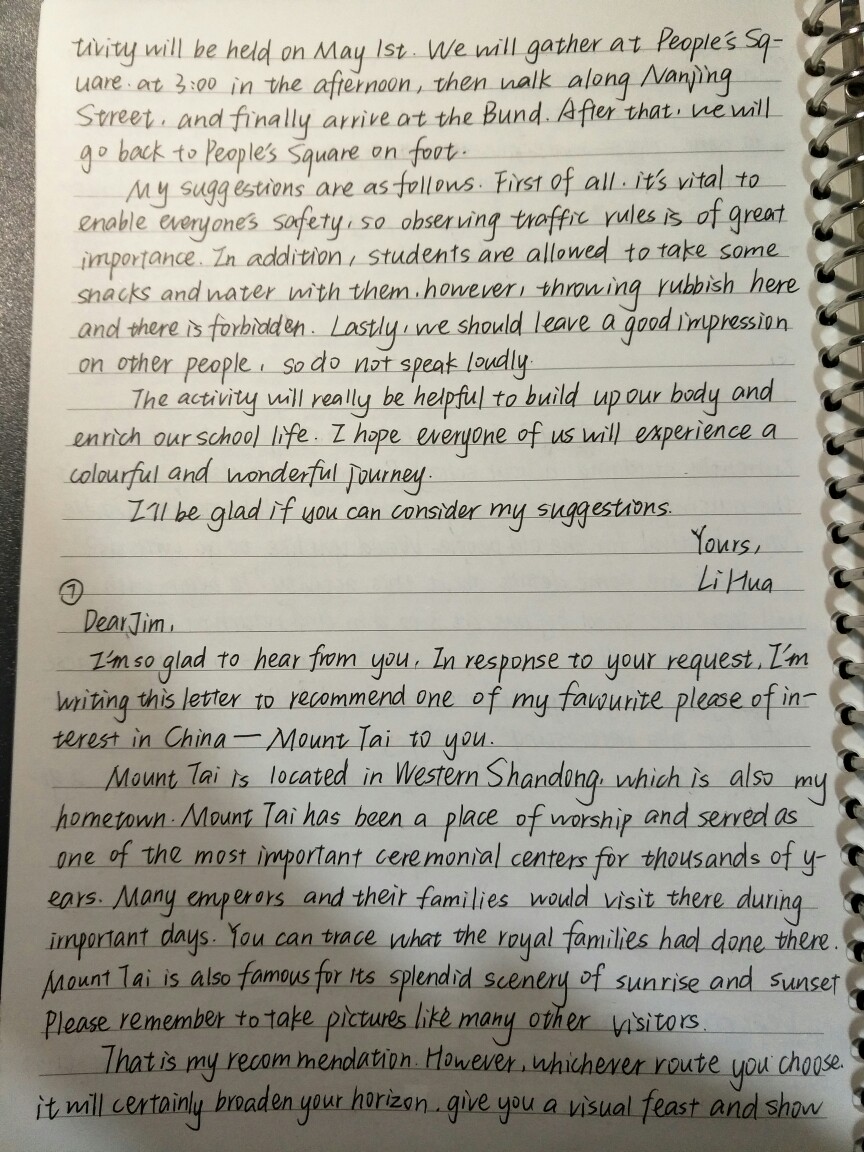 tivity will be held on May 1st. We will gather at People's Sq-
uare. at 3:00 in the afternoon, then walk along Nanjing
Street, and finally arrive at the Bund. After that, we will
go back to People's Square on foot.
My suggestions are as follows. First of all, it's vital to
enable everyone's safety, so observing traffic rules is of great
importance. In addition, students are allowed to take some
snacks and water with them, however, throwing rubbish here
and there is forbidden. Lastly, we should leave a good impression
on other people, so do not speak loudly.
The activity will really be helpful to build up our body and
enrich our school life. I hope everyone of us will experience a
colourful and wonderful journey.
I'll be glad if you can consider my suggestions.
Yours,
Li Hua
⑦
Dear Jim,
I'm so glad to hear from you. In response to your request, I'm
writing this letter to recommend one of my favourite please of in-
terest in China — Mount Tai to you.
Mount Tai is located in Western Shandong, which is also my
hometown. Mount Tai has been a place of worship and served as
one of the most important ceremonial centers for thousands of y-
ears. Many emperors and their families would visit there during
important days. You can trace what the royal families had done there.
Mount Tai is also famous for its splendid scenery of sunrise and sunset
Please remember to take pictures like many other visitors.
That is my recommendation. However, whichever route you choose.
it will certainly broaden your horizon, give you a visual feast and show